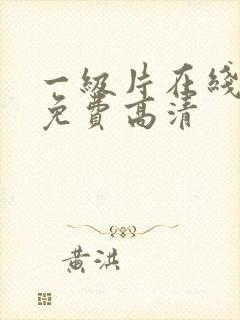 一級片在綫
免費高清
黃洪